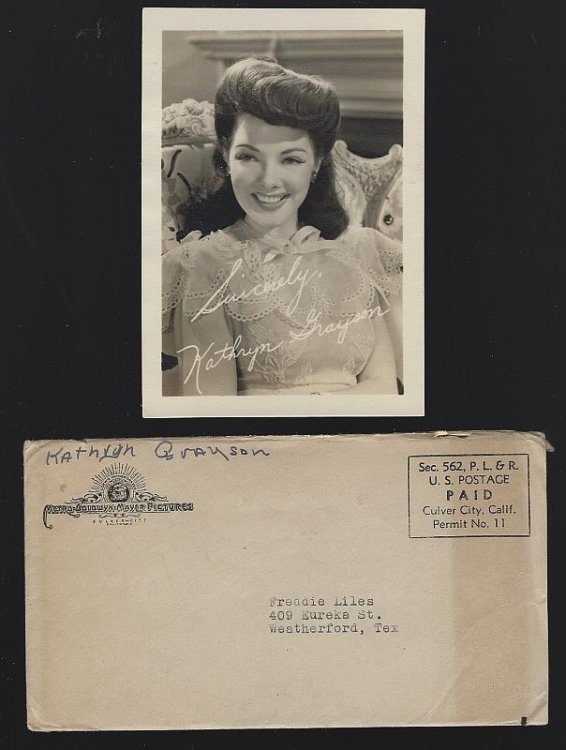 Sincerely,
Kathryn Grayson
Kathryn Grayson
METRO-GOLDWYN-MAYER PICTURES
CULVER CITY
Sec. 562, P. L. & R.
U. S. POSTAGE
PAID
Culver City, Calif.
Permit No. 11
Freddie Liles
409 Eureka St.
Weatherford, Tex